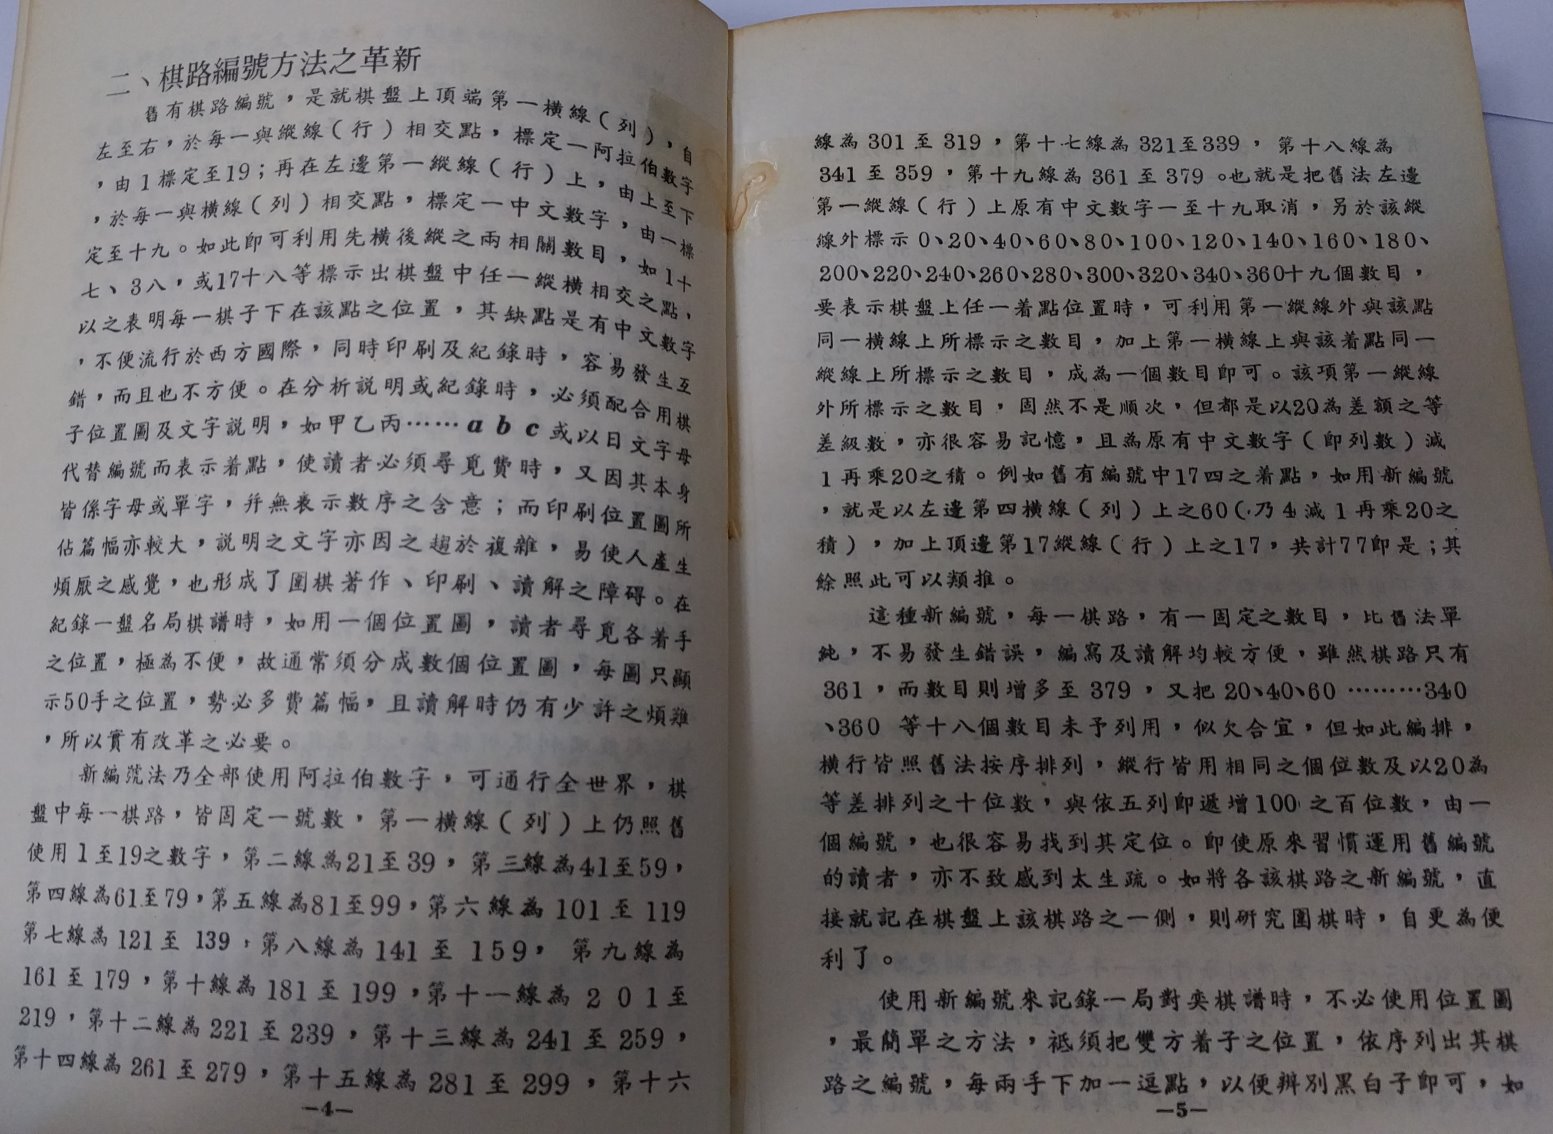 二、棋路編號方法之革新
舊有棋路編號，是就棋盤上頂端第一橫線（列），自
左至右，於每一與縱線（行）相交點，標定一阿拉伯數字
，由1標定至19；再在左邊第一縱線（行）上，由上至下
，於每一與橫線（列）相交點，標定一中文數字，由一標
定至十九。如此即可利用先橫後縱之兩相關數目，如1十
七、3八，或17十八等標示出棋盤中任一縱橫相交之點，
以之表明每一棋子下在該點之位置，其缺點是有中文數字
，不便流行於西方國際，同時印刷及紀錄時，容易發生互
錯，而且也不方便。在分析說明或紀錄時，必須配合用棋
子位置圖及文字說明，如甲乙丙……a b c或以日文字母
代替編號而表示着點，使讀者必須尋覓費時，又因其本身
皆係字母或單字，幷無表示數序之含意；而印刷位置圖所
佔篇幅亦較大，說明之文字亦因之趨於複雜，易使人產生
煩厭之感覺，也形成了圍棋著作、印刷、讀解之障碍。在
紀錄一盤名局棋譜時，如用一個位置圖，讀者尋覓各着手
之位置，極為不便，故通常須分成數個位置圖，每圖只顯
示50手之位置，勢必多費篇幅，且讀解時仍有少許之煩難
，所以實有改革之必要。
新編號法乃全部使用阿拉伯數字，可通行全世界，棋
盤中每一棋路，皆固定一號數，第一橫線（列）上仍照舊
使用1至19之數字，第二線為21至39，第三線為41至59，
第四線為61至79，第五線為81至99，第六線為101至119
第七線為121至139，第八線為141至159，第九線為
161至179，第十線為181至199，第十一線為201至
219，第十二線為221至239，第十三線為241至259，
第十四線為261至279，第十五線為281至299，第十六
—4—
線為301至319，第十七線為321至339，第十八線為
341至359，第十九線為361至379。也就是把舊法左邊
第一縱線（行）上原有中文數字一至十九取消，另於該縱
線外標示0、20、40、60、80、100、120、140、160、180、
200、220、240、260、280、300、320、340、360十九個數目，
要表示棋盤上任一着點位置時，可利用第一縱線外與該點
同一橫線上所標示之數目，加上第一橫線上與該着點同一
縱線上所標示之數目，成為一個數目即可。該項第一縱線
外所標示之數目，固然不是順次，但都是以20為差額之等
差級數，亦很容易記憶，且為原有中文數字（即列數）減
1再乘20之積。例如舊有編號中17四之着點，如用新編號
，就是以左邊第四橫線（列）上之60（乃4減1再乘20之
積），加上頂邊第17縱線（行）上之17，共計77即是；其
餘照此可以類推。
這種新編號，每一棋路，有一固定之數目，比舊法單
純，不易發生錯誤，編寫及讀解均較方便，雖然棋路只有
361，而數目則增多至379，又把20、40、60………340
、360等十八個數目未予列用，似欠合宜，但如此編排，
橫行皆照舊法按序排列，縱行皆用相同之個位數及以20為
等差排列之十位數，與依五列即遞增100之百位數，由一
個編號，也很容易找到其定位。即使原來習慣運用舊編號
的讀者，亦不致感到太生疏。如將各該棋路之新編號，直
接就記在棋盤上該棋路之一側，則研究圍棋時，自更為便
利了。
使用新編號來記錄一局對奕棋譜時，不必使用位置圖
，最簡單之方法，祗須把雙方着子之位置，依序列出其棋
路之編號，每兩手下加一逗點，以便辨別黑白子即可，如
—5—